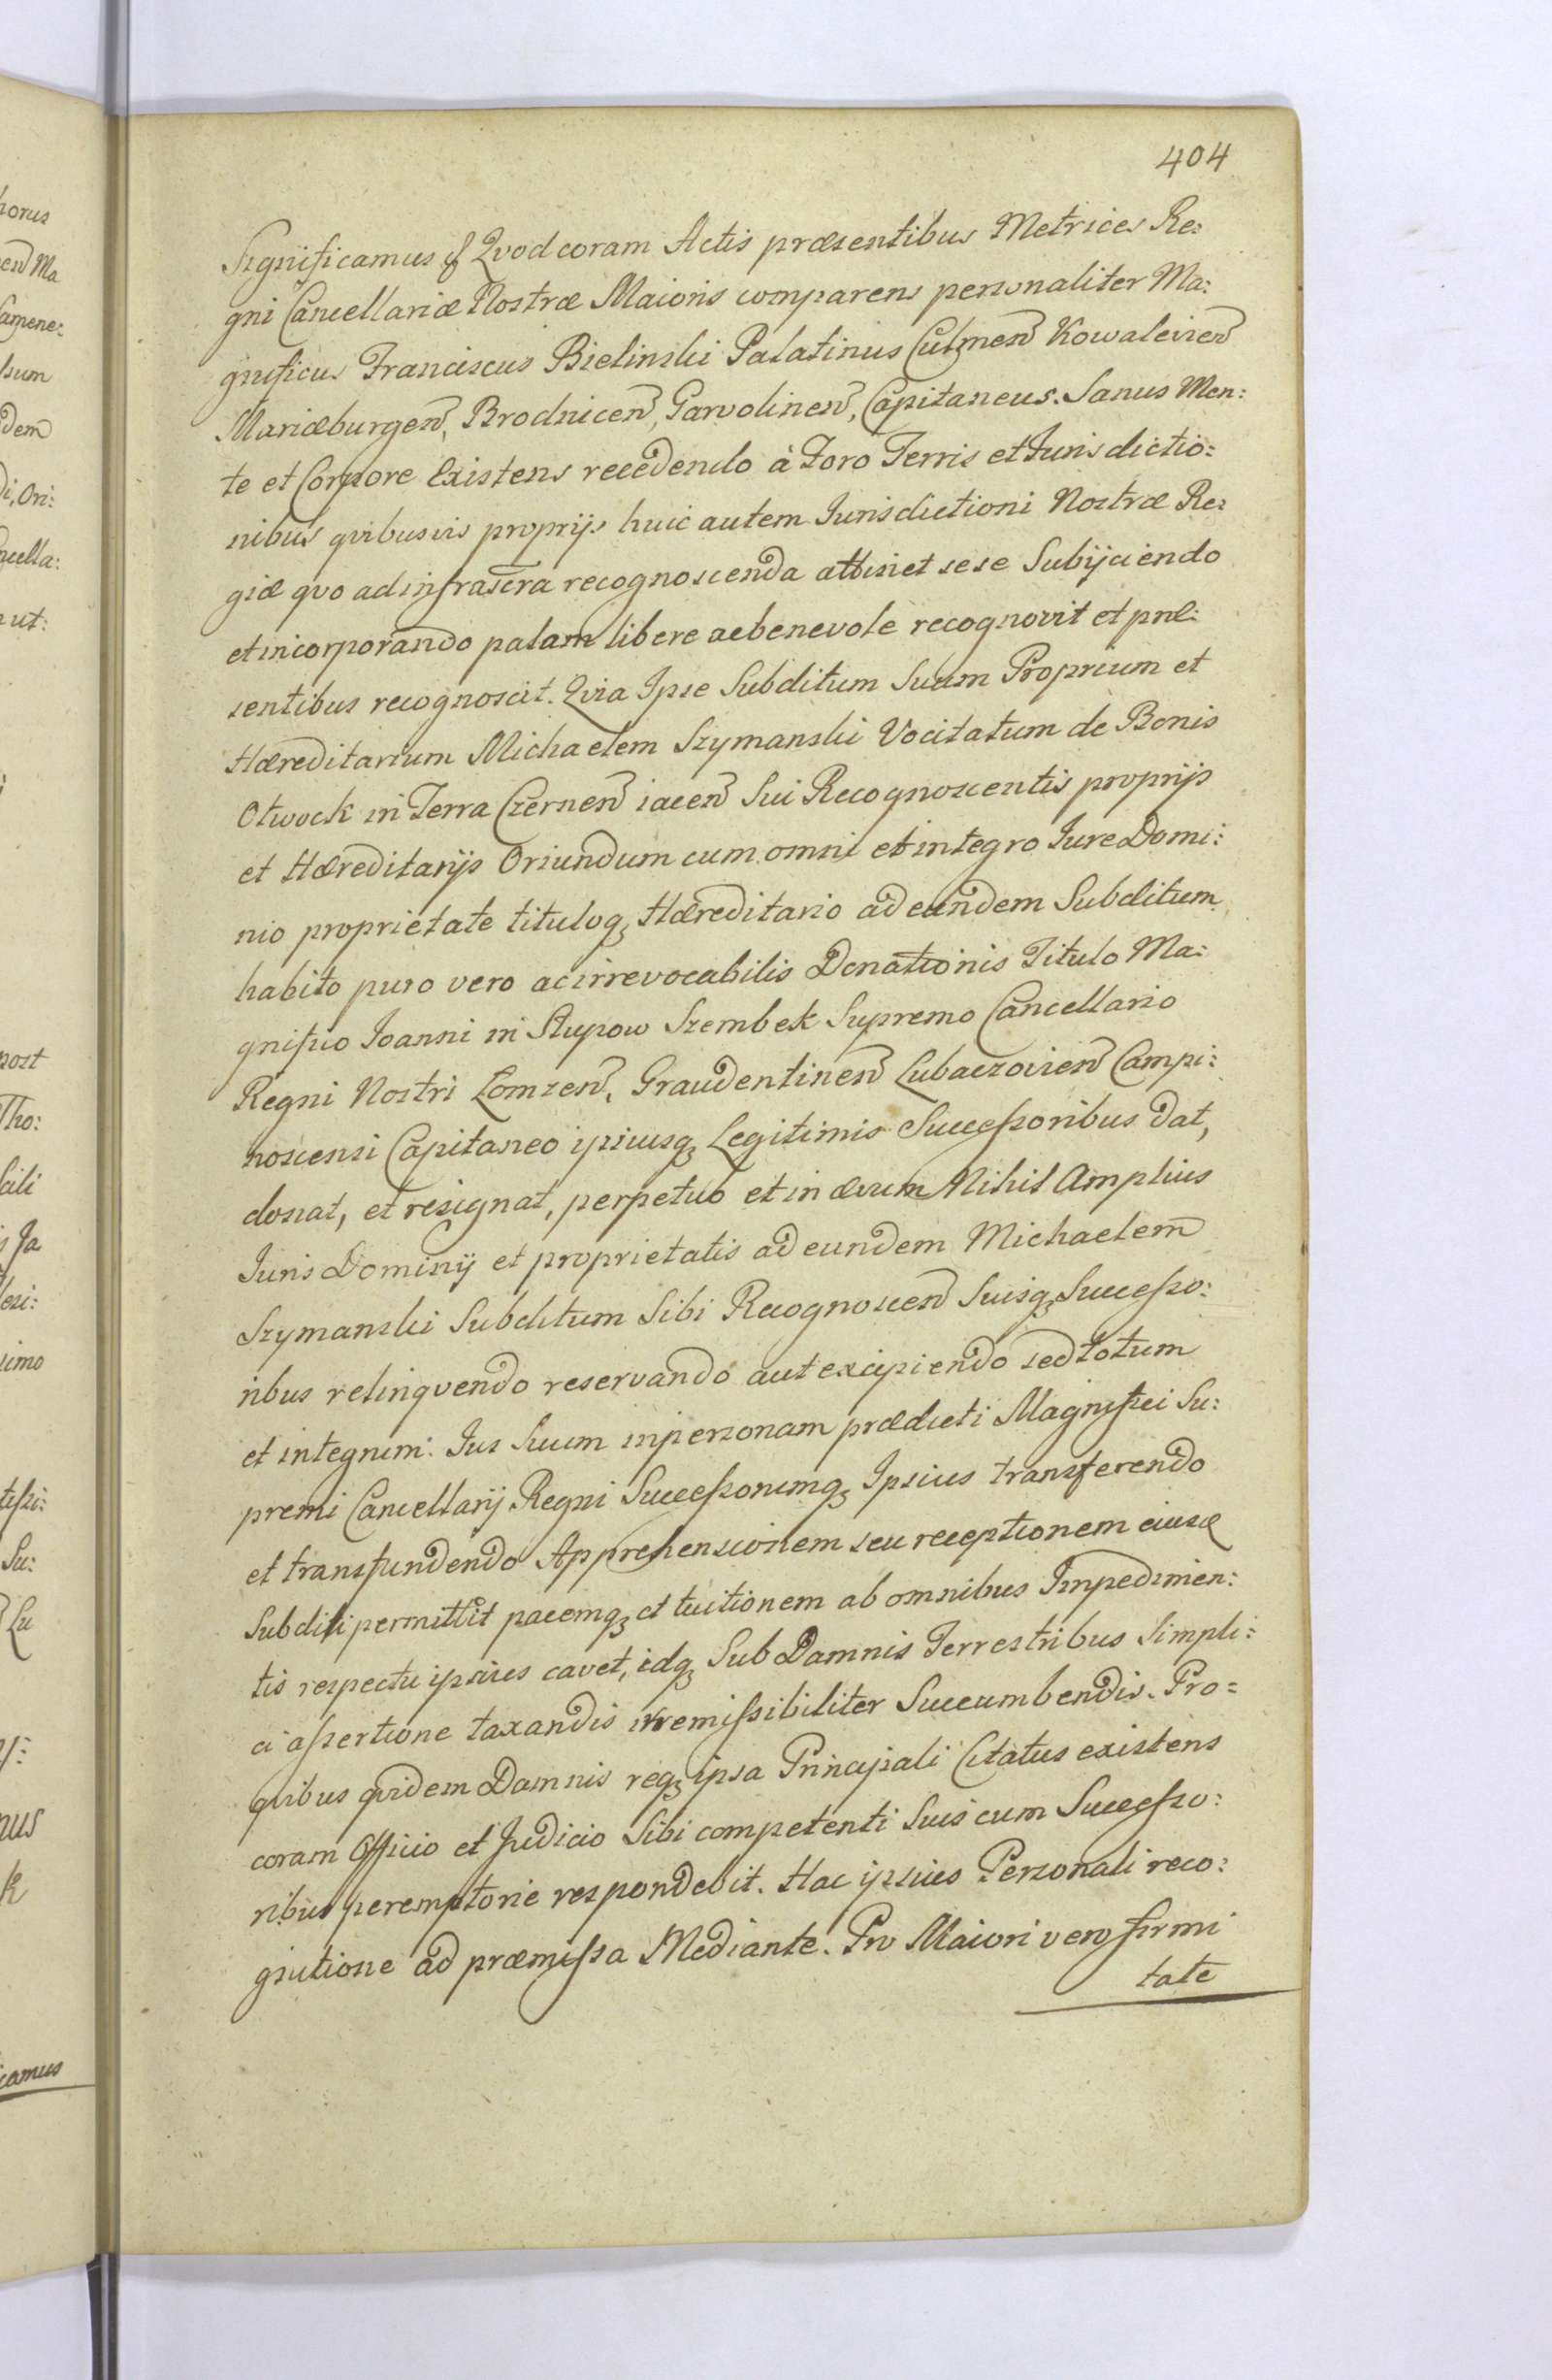 404
Significamus & Qvod coram Actis præsentibus Metrices Re:
gni Cancellariæ Nostræ Maioris comparens personaliter Ma:
gnificus Franciscus Bielinski Palatinus Culmen Kowalevien
Mariæburgen, Brodnicen, Garvolinen, Capitaneus. Sanus Men:
te et Corpore Existens recedendo à Foro Terris et Jurisdictio:
nibus qvibusvis proprijs huic autem Jurisdictioni Nostræ Re:
giæ qvo ad infrascra recognoscenda attinet sese Subijciendo
et incorporando palam libere ac benevole recognovit et præ:
sentibus recognoscit. Qvia Ipse Subditum Suum Proprium et
Hæreditarium Michaelem Szymanski Vocitatum de Bonis
Otwock in Terra Czernen iacen Sui Recognoscentis proprijs
et Hæreditarijs Oriundum cum omni et integro Jure Domi:
nio proprietate tituloq Hæreditario ad eundem Subditum
habito puro vero ac irrevocabilis Donationis Titulo Ma:
gnifico Joanni in Slupow Szembek Supremo Cancellario
Regni Nostri Lomzen, Graudentinen Lubaczovien Campi:
noscensi Capitaneo ipsiusq Legitimis Successoribus dat,
donat, et resignat, perpetuo et in ævum Nihil Amplius
Juris Dominij et proprietatis ad eundem Michaelem
Szymanski Subditum Sibi Recognoscen Suisq Successo:
ribus relinqvendo reservando aut excipiendo sed totum
et integrum: Jus Suum in personam prædicti Magnifici Su:
premi Cancellarij Regni Successorumq Ipsius transferendo
et transfundendo Apprehensionem seu receptionem eiusd
Subditi permittit pacemq et tuitionem ab omnibus Impedimen:
tis respectu ipsius cavet, idq Sub Damnis Terrestribus Simpli:
ci assertione taxandis irremissibiliter Succumbendis. Pro=
qvibus qvidem Damnis req ipsa Principali Citatus existens
coram Officio et Judicio Sibi competenti Suis cum Successo:
ribus peremptorie respondebit. Hac ipsius Personali reco:
gnitione ad præmissa Mediante. Pro Maiori vero firmi
tate